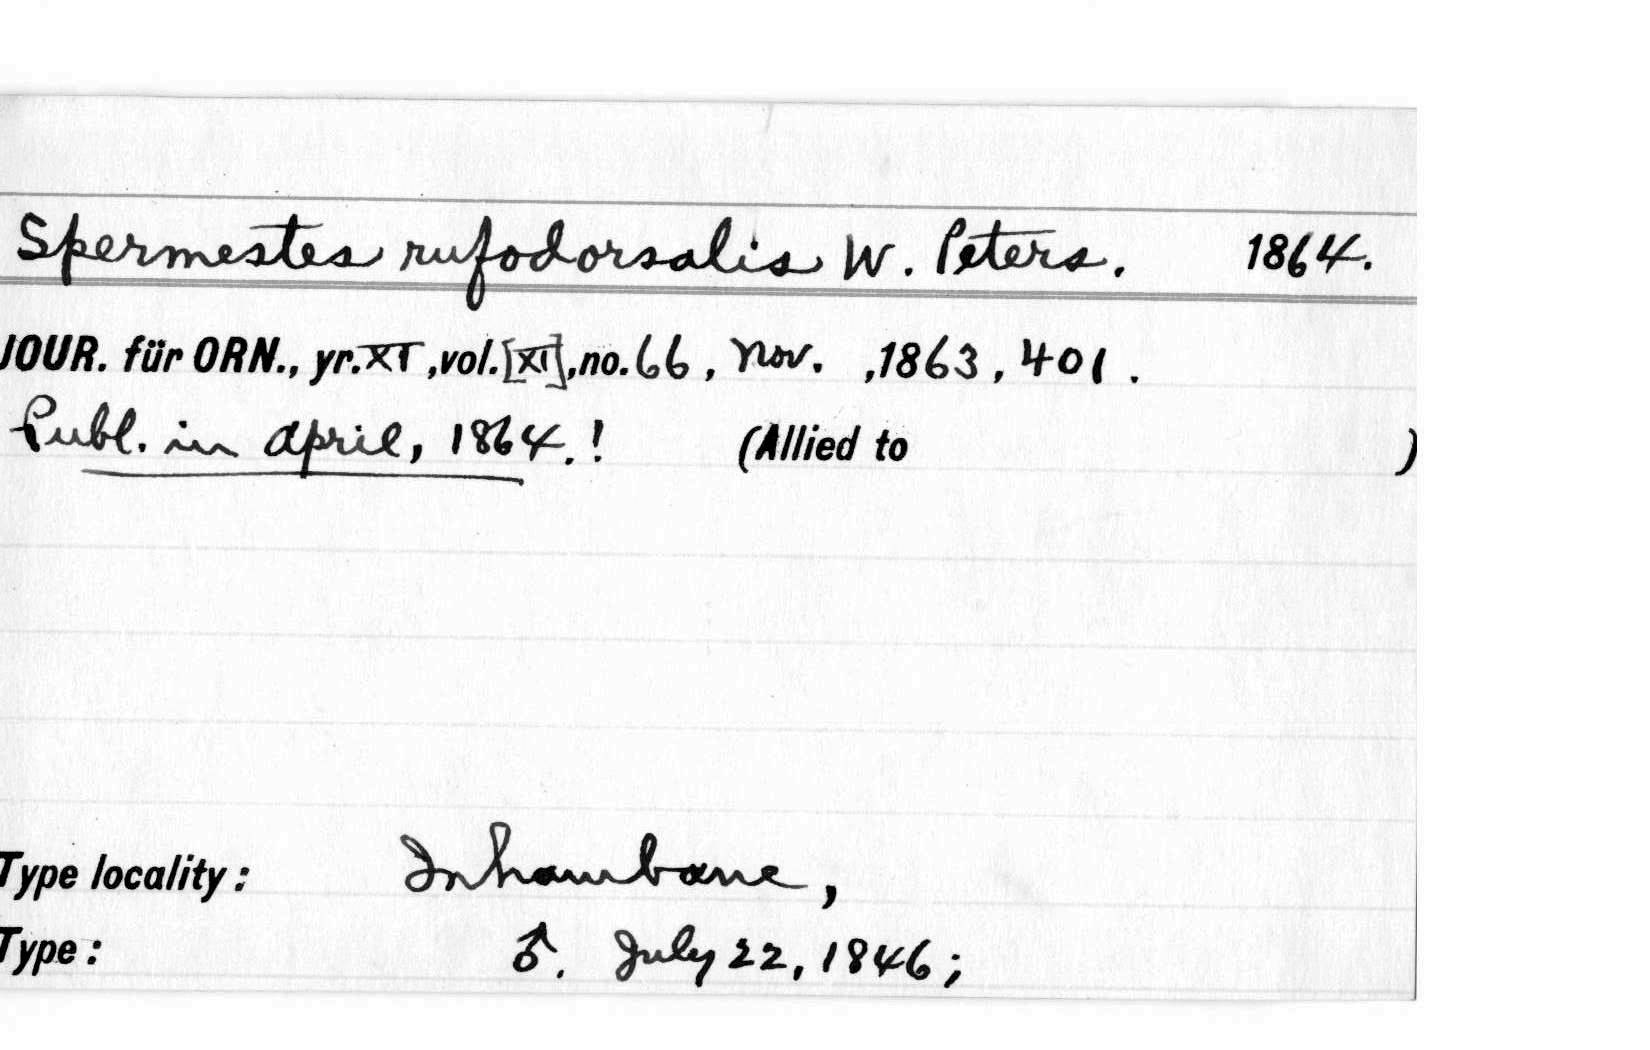 Spermestes rufodorsalis W. Peters. 1864.
JOUR. für ORN., yr. XI, vol. [XI], no. 66, Nov. , 1863, 401.
Publ. in April, 1864.! (Allied to )
Type locality: Inhambane,
Type: ♂. July 22, 1846;